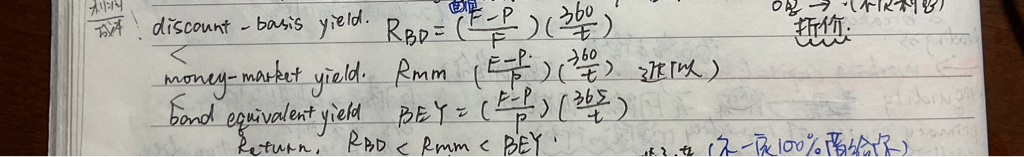 利润
discount-basis yield. R_BD = (F-P/F)(360/t)
面值
折价.
<
money-market yield. Rmm (F-P/P)(360/t) 近似)
<
bond equivalent yield BEY = (F-P/P)(365/t)
Return. R_BD < Rmm < BEY.
(不一定100%卖给你)